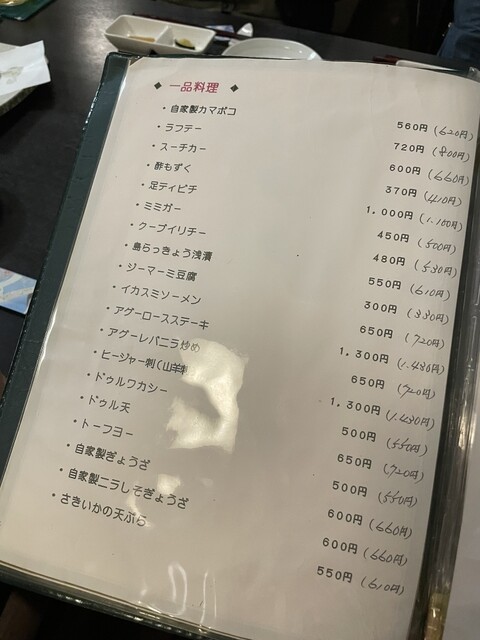 ◆ 一品料理 ◆
・自家製カマボコ 560円 (620円)
・ラフテー 720円 (800円)
・スーチカー 600円 (660円)
・酢もずく 370円 (410円)
・足ティビチ 1,000円 (1,100円)
・ミミガー 450円 (500円)
・クーブイリチー 480円 (530円)
・島らっきょう浅漬 550円 (610円)
・ジーマーミ豆腐 300円 (330円)
・イカスミソーメン 650円 (720円)
・アグーロースステーキ 1,300円 (1,430円)
・アグーレバニラ炒め 650円 (720円)
・ヒージャー刺(山羊刺 1,300円 (1,430円)
・ドゥルワカシー 500円 (550円)
・ドゥル天 650円 (720円)
・トーフヨー 500円 (550円)
・自家製ぎょうざ 600円 (660円)
・自家製ニラしそぎょうざ 600円 (660円)
・さきいかの天ぷら 550円 (610円)